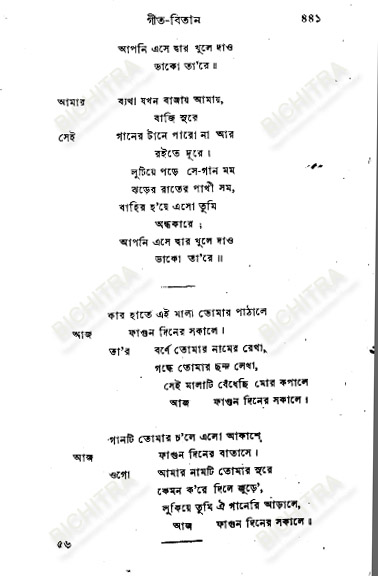 গীত-বিতান ৪৪১
আপনি এসে দ্বার খুলে দাও
ডাকো তা'রে ॥
আমার ব্যথা যখন বাজায় আমায়,
বাজি সুরে
সেই গানের টানে পারো না আর
রইতে দূরে ।
লুটিয়ে পড়ে সে-গান মম
ঝড়ের রাতের পাখী সম,
বাহির হ'য়ে এসো তুমি
অন্ধকারে ;
আপনি এসে দ্বার খুলে দাও
ডাকো তা'রে ॥
কার হাতে এই মালা তোমার পাঠালে
আজ ফাগুন দিনের সকালে ।
তা'র বর্ণে তোমার নামের রেখা,
গন্ধে তোমার ছন্দ লেখা,
সেই মালাটি বেঁধেছি মোর কপালে
আজ ফাগুন দিনের সকালে ।
গানটি তোমার চ'লে এলো আকাশে
আজ ফাগুন দিনের বাতাসে ।
ওগো আমার নামটি তোমার সুরে
কেমন ক'রে দিলে জুড়ে',
লুকিয়ে তুমি ঐ গানেরি আড়ালে,
আজ ফাগুন দিনের সকালে ॥
৫৬
BICHITRA
BICHITRA
BICHITRA
BICHITRA
BICHITRA
BICHITRA